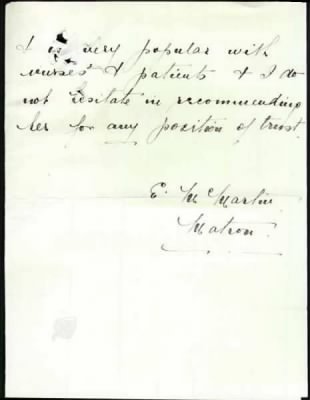 & is very popular with
nurses & patients & I do
not hesitate in recommending
her for any position of trust.
E. McMartin
Matron.